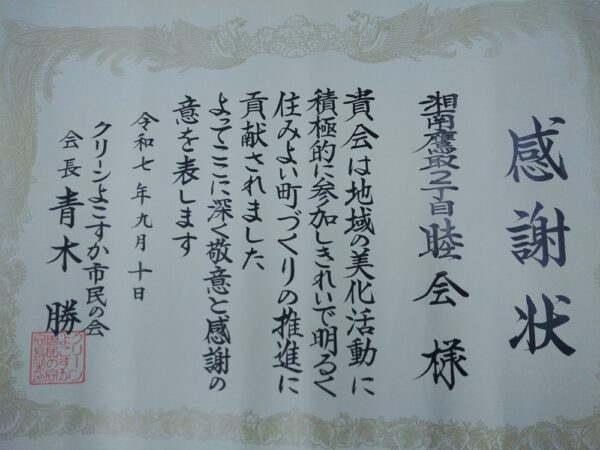 感謝状
湘南鷹取2丁目睦会 様
貴会は地域の美化活動に
積極的に参加しきれいで明るく
住みよい町づくりの推進に
貢献されました
よってここに深く敬意と感謝の
意を表します
令和七年九月十日
クリーンよこすか市民の会
会長 青木 勝